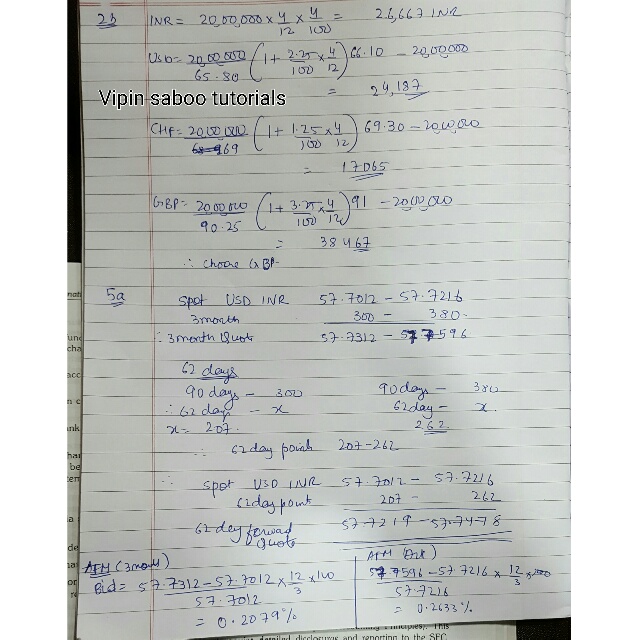 2b INR = 20,00,000 × 4/12 × 4/100 = 26,667 INR
USD = 20,00,000/65.80 (1 + 2.25/100 × 4/12) 66.10 - 20,00,000
= 24,187
Vipin saboo tutorials
CHF = 20,00,000/69 (1 + 1.25/100 × 4/12) 69.30 - 20,00,000
= 17065
GBP = 20,00,000/90.25 (1 + 3.25/100 × 4/12) 91 - 20,00,000
= 38467
∴ choose GBP
5a Spot USD INR 57.7012 - 57.7216
3month 300 - 380
∴ 3month Quote 57.7312 - 57.7596
62 days
90 days - 300 90 days - 380
∴ 62 day - x 62 day - x.
x = 207. 262
∴ 62 day points 207-262
∴ Spot USD INR 57.7012 - 57.7216
62 day point 207 - 262
62 day forward 57.7219 - 57.7478
Quote
AFM (3 month) AFM (Ask)
Bid = 57.7312 - 57.7012/57.7012 × 12/3 × 100 57.7596 - 57.7216/57.7216 × 12/3 × 100
= 0.2079% = 0.2633%
detailed disclosures and reporting to the SEC